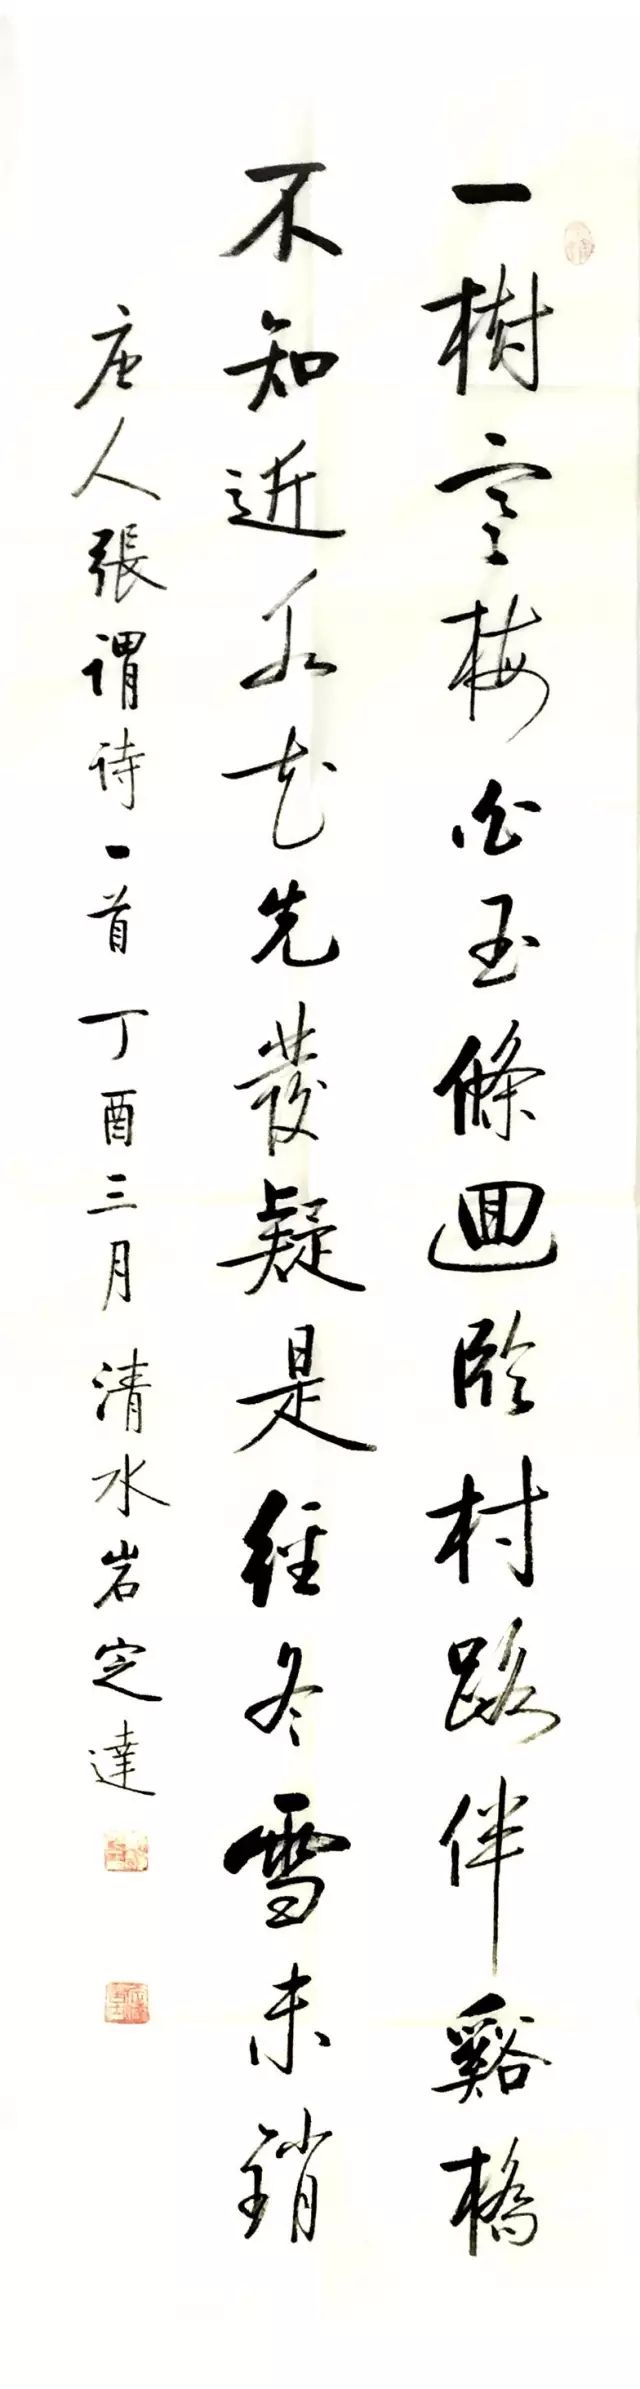 一樹寒梅白玉條迴臨村路伴谿橋
不知近水花先發疑是經冬雪未銷
唐人張谓诗一首丁酉三月清水岩定達